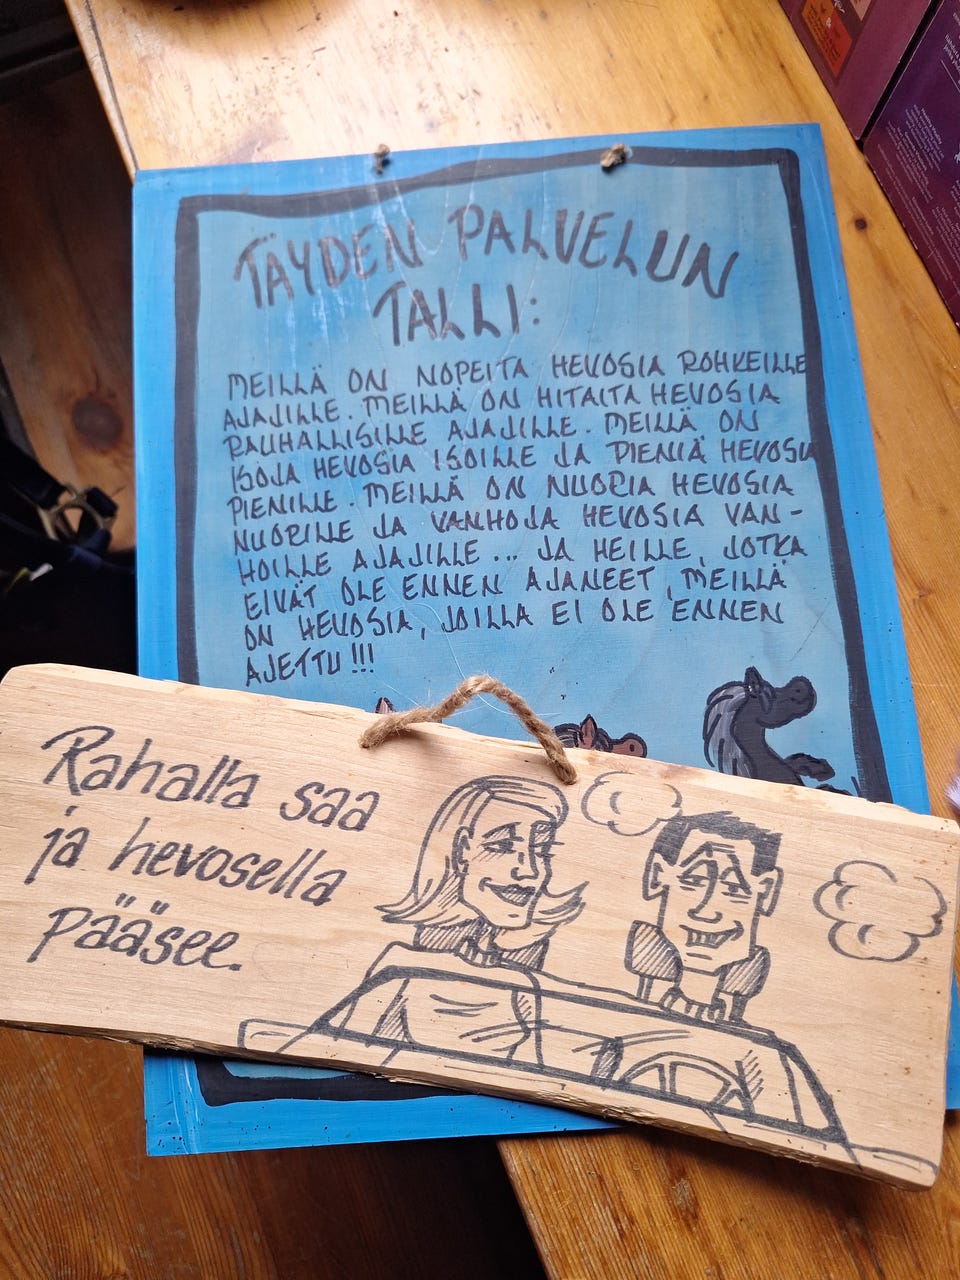 TÄYDEN PALVELUN
TALLI:
MEILLÄ ON NOPEITA HEVOSIA ROHKEILLE
AJAJILLE. MEILLÄ ON HITAITA HEVOSIA
RAUHALLISILLE AJAJILLE. MEILLÄ ON
ISOJA HEVOSIA ISOILLE JA PIENIÄ HEVOSIA
PIENILLE. MEILLÄ ON NUORIA HEVOSIA
NUORILLE JA VANHOJA HEVOSIA VAN-
HOILLE AJAJILLE... JA HEILLE, JOTKA
EIVÄT OLE ENNEN AJANEET, MEILLÄ
ON HEVOSIA, JOILLA EI OLE ENNEN
AJETTU!!!
Rahalla saa
ja hevosella
pääsee.